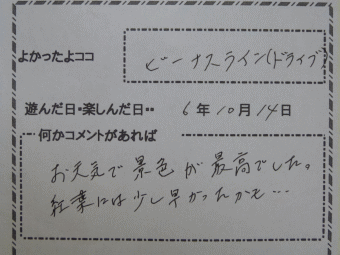 よかったよココ ビーナスライン(ドライブ)
遊んだ日・楽しんだ日・・ 6年10月14日
何かコメントがあれば
お天気で景色が最高でした。
紅葉には少し早かったかも…